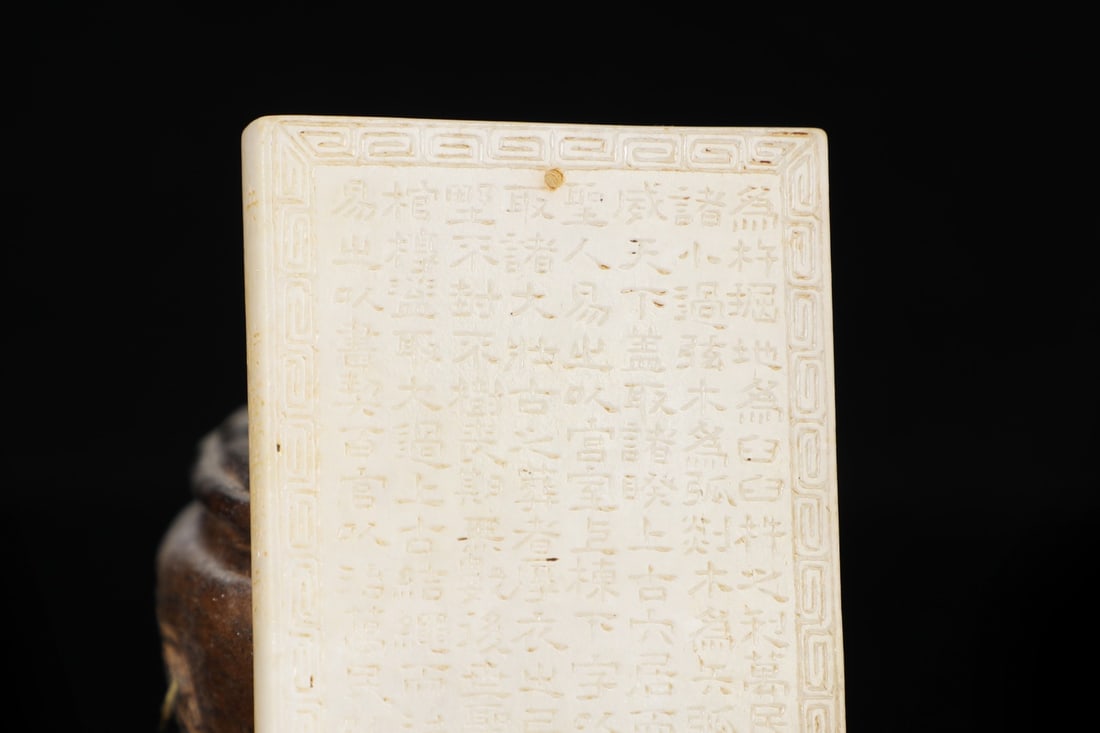 爲杵掘地爲臼臼杵之利萬民
諸小過弦木爲弧剡木爲矢弧
威天下蓋取諸睽上古穴居而
聖人易之以宮室上棟下宇以
取諸大壯古之葬者厚衣之
野不封不樹喪期無數後世聖
棺槨蓋取大過上古結繩而
易之以書契百官以治萬民